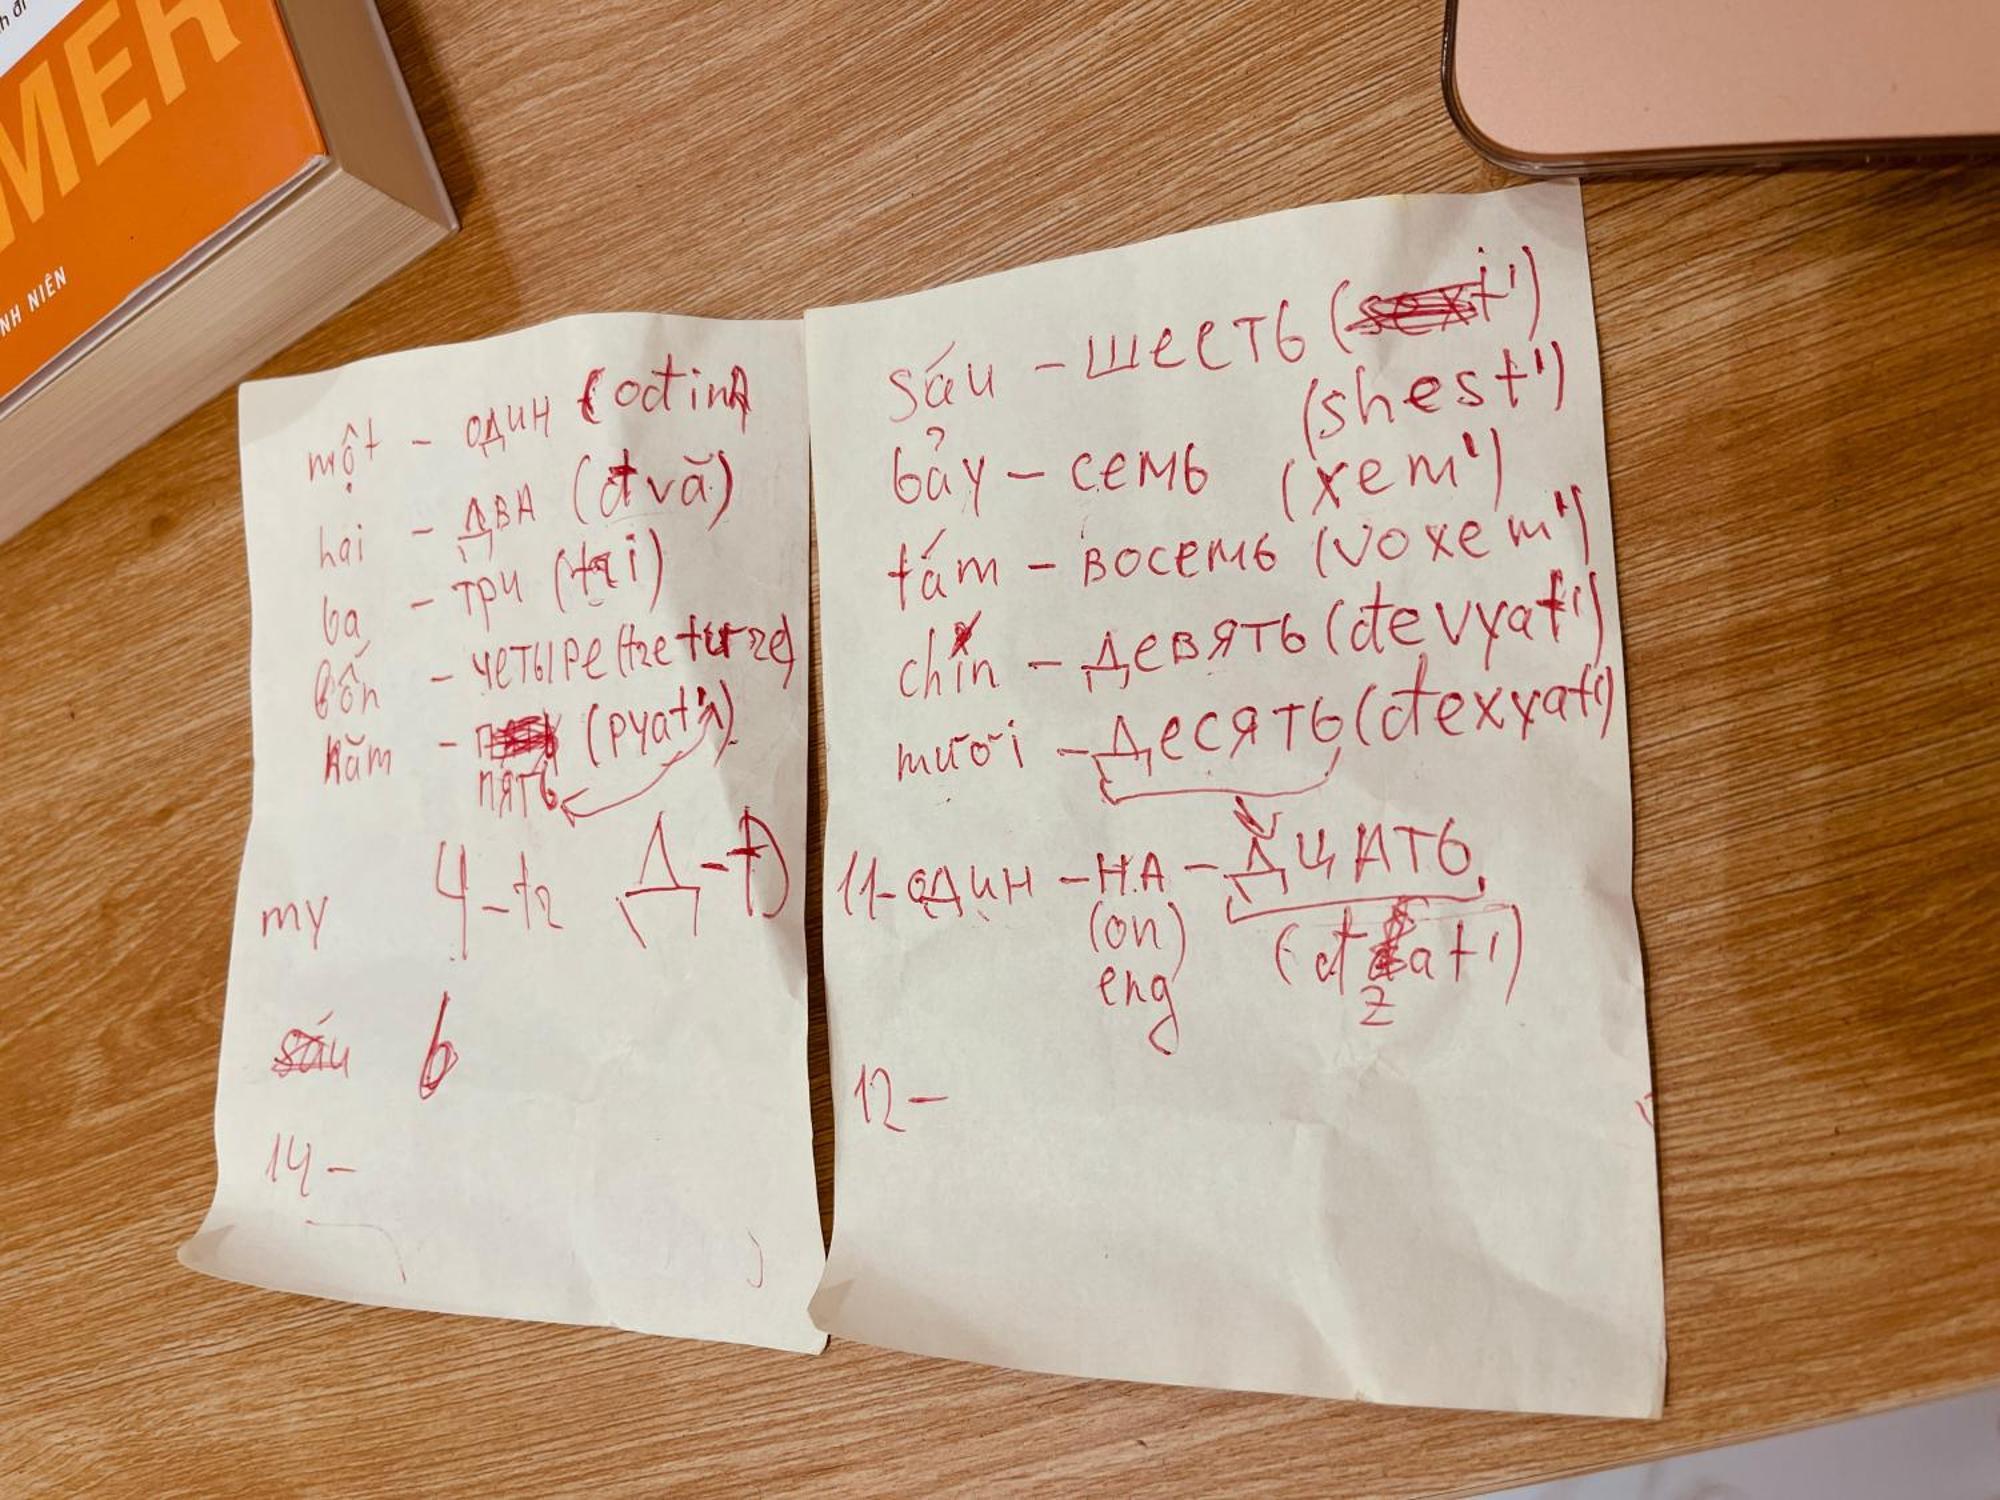 MER
NH NIÊN
một - один (ođin)
hai - ДВА (đvă)
ba - три (tri)
bốn - ЧЕТЫРЕ
năm - (pyat')
ПЯТЬ
my Ч - tr Д - Đ
sáu 6
14 -
sáu - ШЕСТЬ
(shest')
bảy - семь (xem')
tám - восемь (voxem')
chín - ДЕВЯТЬ (đevyat')
mười - ДЕСЯТЬ (đexyat')
11 - один - НА - ДЦАТЬ
(on) (đzat')
eng
12 -